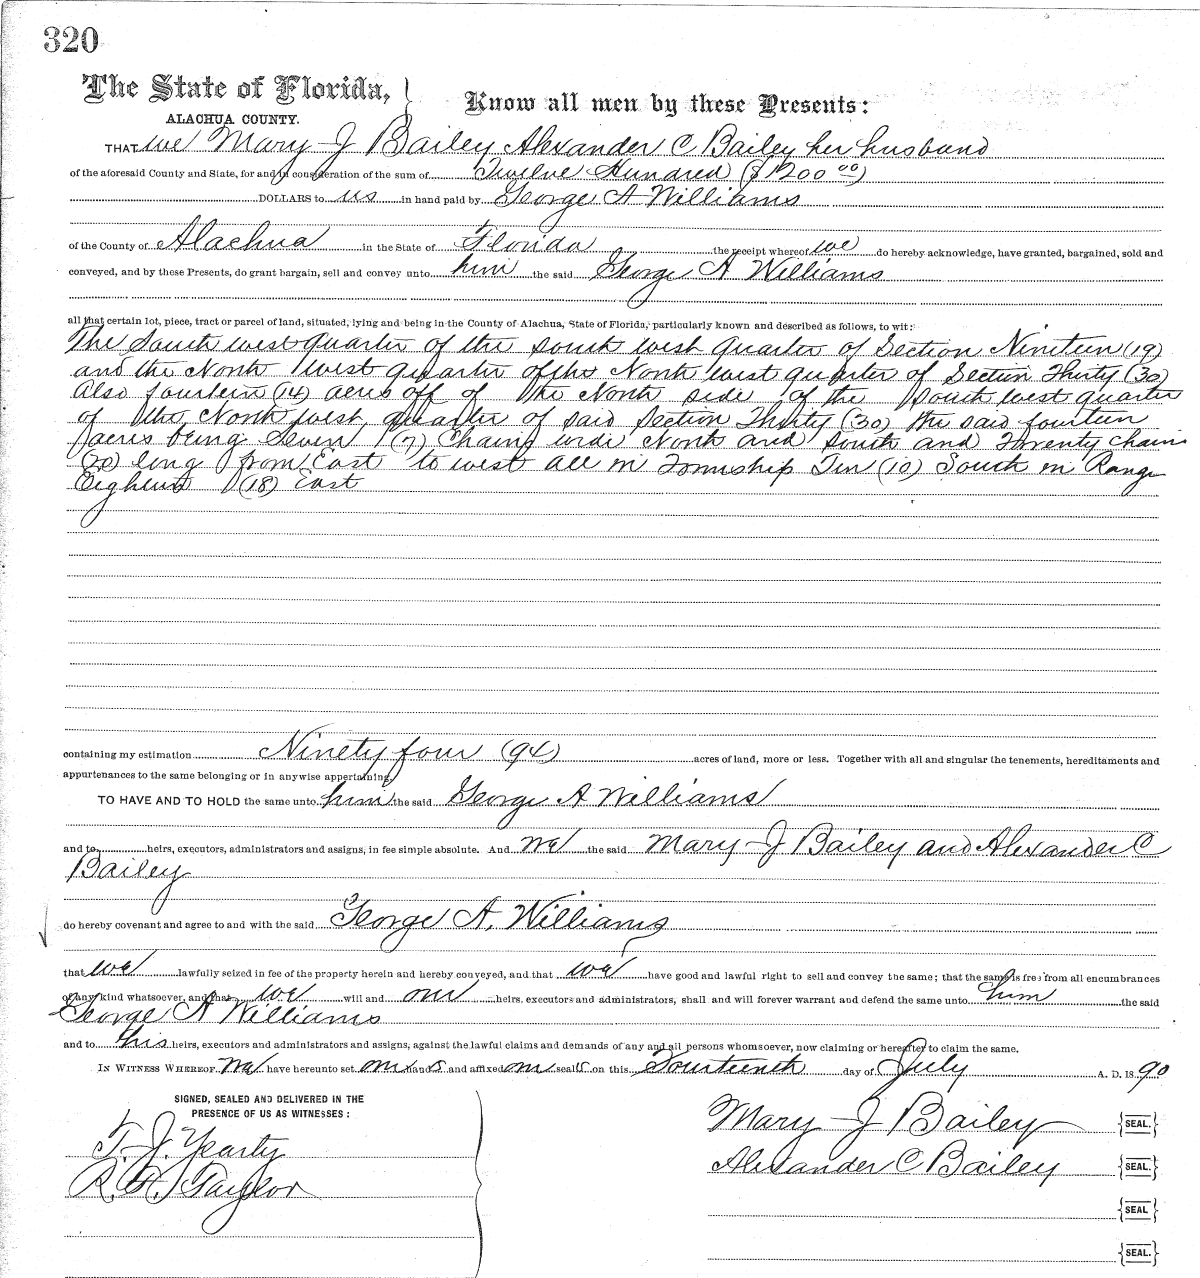 320
The State of Florida, }
ALACHUA COUNTY.
Know all men by these Presents:
THAT we Mary J Bailey Alexander C Bailey her husband
of the aforesaid County and State, for and in consideration of the sum of Twelve Hundred ($1200 00)
DOLLARS to us in hand paid by George A Williams
of the County of Alachua in the State of Florida the receipt whereof we do hereby acknowledge, have granted, bargained, sold and
conveyed, and by these Presents, do grant bargain, sell and convey unto him the said George A Williams
all that certain lot, piece, tract or parcel of land, situated, lying and being in the County of Alachua, State of Florida, particularly known and described as follows, to wit:
The South west quarter of the South west quarter of Section Nineteen (19)
and the North west quarter of the North west quarter of Section Thirty (30)
Also fourteen (14) acres off of the North side of the South west quarter
of the North west quarter of said Section Thirty (30) the said fourteen
acres being Seven (7) Chains wide North and South and Twenty chains
(20) long from East to west all in Township Ten (10) South in Range
Eighteen (18) East
containing my estimation Ninety four (94) acres of land, more or less. Together with all and singular the tenements, hereditaments and
appurtenances to the same belonging or in anywise appertaining,
TO HAVE AND TO HOLD the same unto him the said George A Williams
and to heirs, executors, administrators and assigns, in fee simple absolute. And we the said Mary J Bailey and Alexander C
Bailey
do hereby covenant and agree to and with the said George A. Williams
that we lawfully seized in fee of the property herein and hereby conveyed, and that we have good and lawful right to sell and convey the same; that the same is free from all encumbrances
of any kind whatsoever, and that we will and our heirs, executors and administrators, shall and will forever warrant and defend the same unto him the said
George A Williams
and to his heirs, executors and administrators and assigns, against the lawful claims and demands of any and all persons whomsoever, now claiming or hereafter to claim the same.
IN WITNESS WHEREOF we have hereunto set our hands and affixed our seals on this Fourteenth day of July A. D. 1890
SIGNED, SEALED AND DELIVERED IN THE
PRESENCE OF US AS WITNESSES:
T. J. Yearty
R. H. Taylor
Mary J Bailey {SEAL.}
Alexander C Bailey {SEAL.}
{SEAL}
{SEAL.}